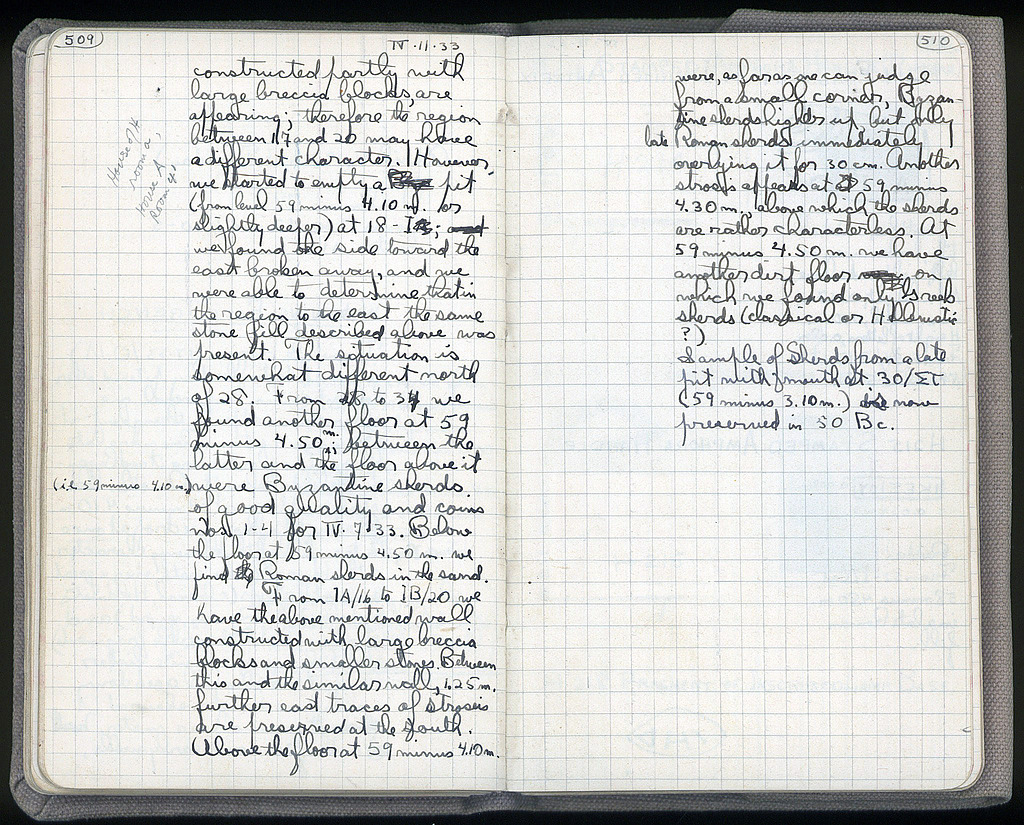 509
IV·11·33
constructed partly with
large breccia blocks, are
appearing; therefore the region
between 17 and 20 may have
a different character. However,
we started to empty a pit
(from level 59 minus 4.10 m. or
slightly deeper) at 18-
we found the side toward the
east broken away, and we
were able to determine that in
the region to the east the same
stone fill described above was
present. The situation is
somewhat different north
of 28. From 28 to 34 we
found another floor at 59
minus 4.50 m.; between the
latter and the floor above it
(i.e. 59 minus 4.10 m.) were Byzantine sherds
of good quality and coins
nos. 1-4 for IV·7·33. Below
the floor at 59 minus 4.50 m. we
find Roman sherds in the sand.
From IA/16 to IB/20 we
have the above mentioned wall
constructed with large breccia
blocks and smaller stones. Between
this and the similar wall, 1.25 m.
further east traces of strosis
are preserved at the south.
Above the floor at 59 minus 4.10 m.
House of
room a,
House A
Room
510
were, as far as one can judge
from a small corner, Byzan-
tine sherds higher up, but only
late Roman sherds immediately
overlying it for 30 cm. Another
strosis appears at 59 minus
4.30 m. above which the sherds
are rather characterless. At
59 minus 4.50 m. we have
another dirt floor on
which we found only Greek
sherds (classical or Hellenistic
?)
Sample of Sherds from a late
pit with mouth at 30/ΣΤ
(59 minus 3.10 m.) is now
preserved in 50 Bc.